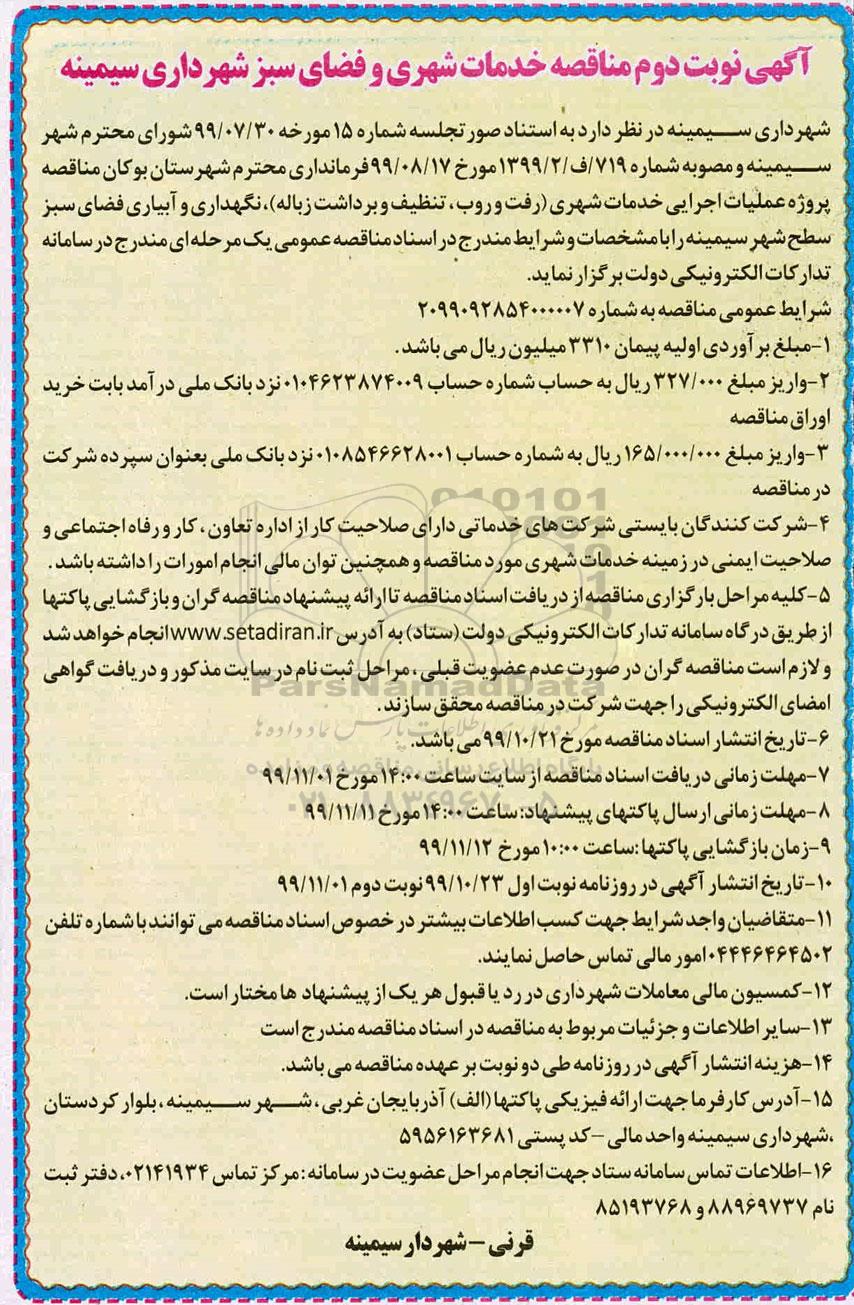 آگهی نوبت دوم مناقصه خدمات شهری و فضای سبز شهرداری سیمینه
شهرداری سیمینه در نظر دارد به استناد صورتجلسه شماره ۱۵ مورخه ۹۹/۰۷/۳۰ شورای محترم شهر
سیمینه و مصوبه شماره ۷۱۹/ف/۱۳۹۹/۲ مورخ ۹۹/۰۸/۱۷ فرمانداری محترم شهرستان بوکان مناقصه
پروژه عملیات اجرایی خدمات شهری (رفت و روب، تنظیف و برداشت زباله)، نگهداری و آبیاری فضای سبز
سطح شهر سیمینه را با مشخصات و شرایط مندرج در اسناد مناقصه عمومی یک مرحله ای مندرج در سامانه
تدارکات الکترونیکی دولت برگزار نماید.
شرایط عمومی مناقصه به شماره ۲۰۹۹۰۹۲۸۵۴۰۰۰۰۰۷
۱-مبلغ برآوردی اولیه پیمان ۳۳۱۰ میلیون ریال می باشد.
۲-واریز مبلغ ۳۲۷/۰۰۰ ریال به حساب شماره حساب ۰۱۰۴۶۲۳۸۷۴۰۰۹ نزد بانک ملی درآمد بابت خرید
اوراق مناقصه
۳-واریز مبلغ ۱۶۵/۰۰۰/۰۰۰ ریال به شماره حساب ۰۱۰۸۵۴۶۶۲۸۰۰۱ نزد بانک ملی بعنوان سپرده شرکت
در مناقصه
۴-شرکت کنندگان بایستی شرکت های خدماتی دارای صلاحیت کار از اداره تعاون، کار و رفاه اجتماعی و
صلاحیت ایمنی در زمینه خدمات شهری مورد مناقصه و همچنین توان مالی انجام امورات را داشته باشد.
۵-کلیه مراحل بارگزاری مناقصه از دریافت اسناد مناقصه تا ارائه پیشنهاد مناقصه گران و بازگشایی پاکتها
از طریق درگاه سامانه تدارکات الکترونیکی دولت (ستاد) به آدرس www.setadiran.ir انجام خواهد شد
و لازم است مناقصه گران در صورت عدم عضویت قبلی، مراحل ثبت نام در سایت مذکور و دریافت گواهی
امضای الکترونیکی را جهت شرکت در مناقصه محقق سازند.
ParsNamadData
۶-تاریخ انتشار اسناد مناقصه مورخ ۹۹/۱۰/۲۱ می باشد.
۷-مهلت زمانی دریافت اسناد مناقصه از سایت ساعت ۱۴:۰۰ مورخ ۹۹/۱۱/۰۱
۸-مهلت زمانی ارسال پاکتهای پیشنهاد: ساعت ۱۴:۰۰ مورخ ۹۹/۱۱/۱۱
۹-زمان بازگشایی پاکتها: ساعت ۱۰:۰۰ مورخ ۹۹/۱۱/۱۲
۱۰-تاریخ انتشار آگهی در روزنامه نوبت اول ۹۹/۱۰/۲۳ نوبت دوم ۹۹/۱۱/۰۱
۱۱-متقاضیان واجد شرایط جهت کسب اطلاعات بیشتر در خصوص اسناد مناقصه می توانند با شماره تلفن
۰۴۴۴۶۴۶۴۵۰۲ امور مالی تماس حاصل نمایند.
۱۲-کمسیون مالی معاملات شهرداری در رد یا قبول هر یک از پیشنهاد ها مختار است.
۱۳-سایر اطلاعات و جزئیات مربوط به مناقصه در اسناد مناقصه مندرج است
۱۴-هزینه انتشار آگهی در روزنامه طی دو نوبت بر عهده مناقصه می باشد.
۱۵-آدرس کارفرما جهت ارائه فیزیکی پاکتها (الف) آذربایجان غربی، شهر سیمینه، بلوار کردستان
،شهرداری سیمینه واحد مالی – کد پستی ۵۹۵۶۱۶۳۶۸۱
۱۶-اطلاعات تماس سامانه ستاد جهت انجام مراحل عضویت در سامانه: مرکز تماس ۰۲۱۴۱۹۳۴، دفتر ثبت
نام ۸۸۹۶۹۷۳۷ و ۸۵۱۹۳۷۶۸
قرنی – شهردار سیمینه